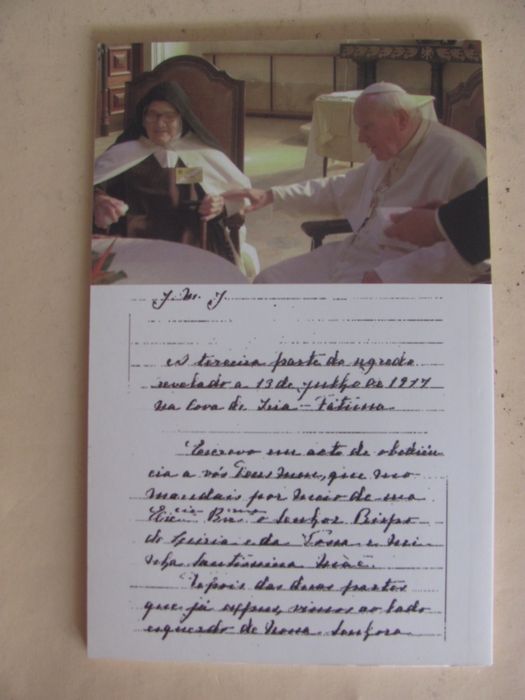 J. M. J.
A terceira parte do segredo
revelado a 13 de julho de 1917
na Cova de Iria - Fátima.
Escrevo em acto de obediên-
cia a vós Deus meu, que mo
mandais por meio de sua
Ex.cia Rev.ma o Senhor Bispo
de Leiria e da Vossa e Mi-
nha Santíssima Mãe.
Depois das duas partes
que já expus, vimos ao lado
esquerdo de Nossa Senhora